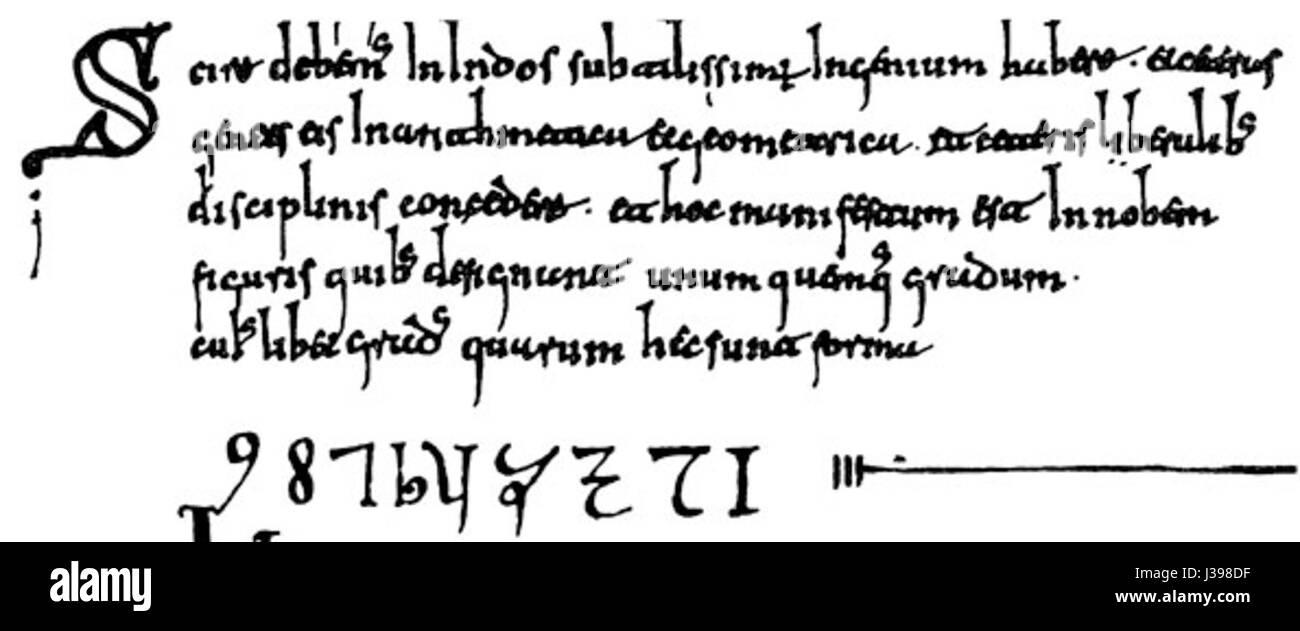 Scire debemus In Indos subtilissimum Ingenium habere. et ceteras
gentes eis In arithmetica et geometrica. et ceteris liberalibus
disciplinis concedere. et hoc manifestum est In nobem
figuris quibus designant unum quemque gradum.
cuiuslibet gradus quarum hec sunt forma
9 8 7 6 5 4 3 2 1
alamy
J398DF
www.alamy.com